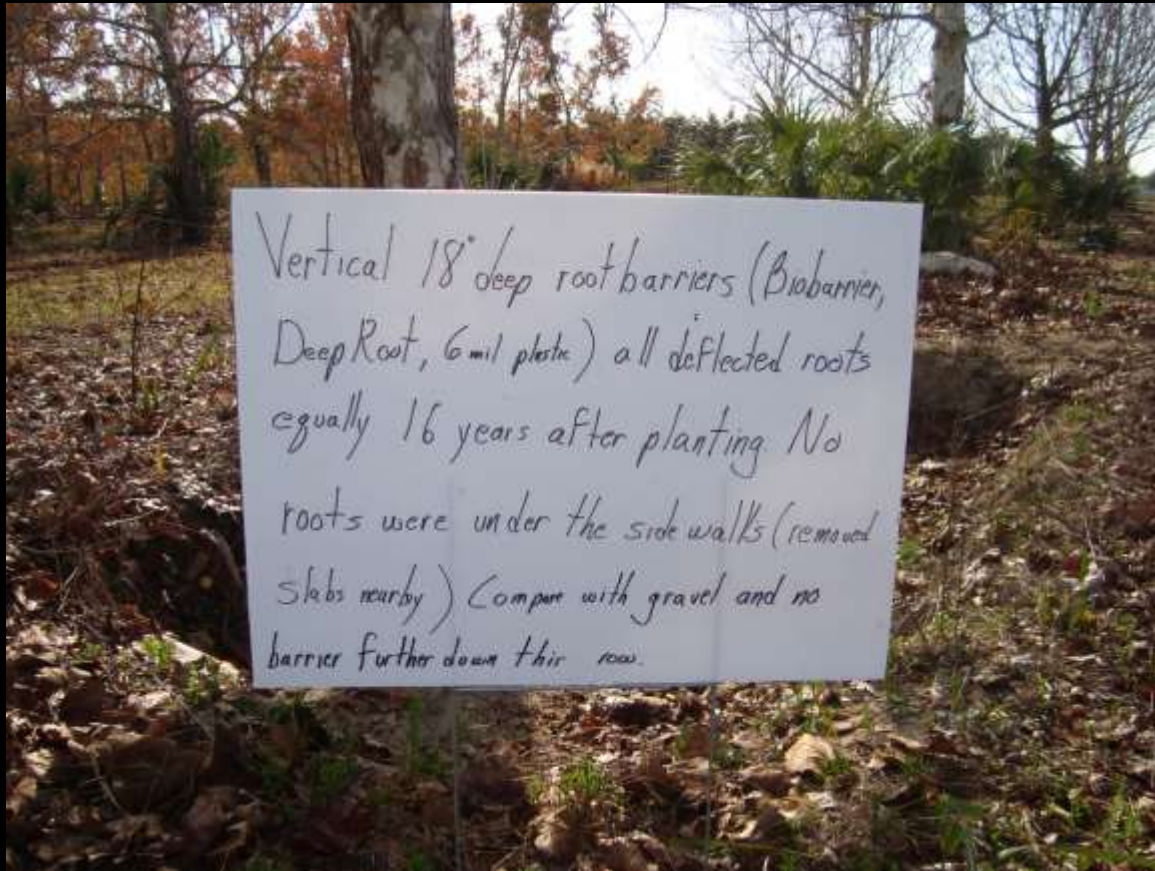 Vertical 18" deep root barriers (Biobarrier,
DeepRoot, 6 mil plastic) all deflected roots
equally 16 years after planting. No
roots were under the sidewalks (removed
slabs nearby) Compare with gravel and no
barrier further down this row.